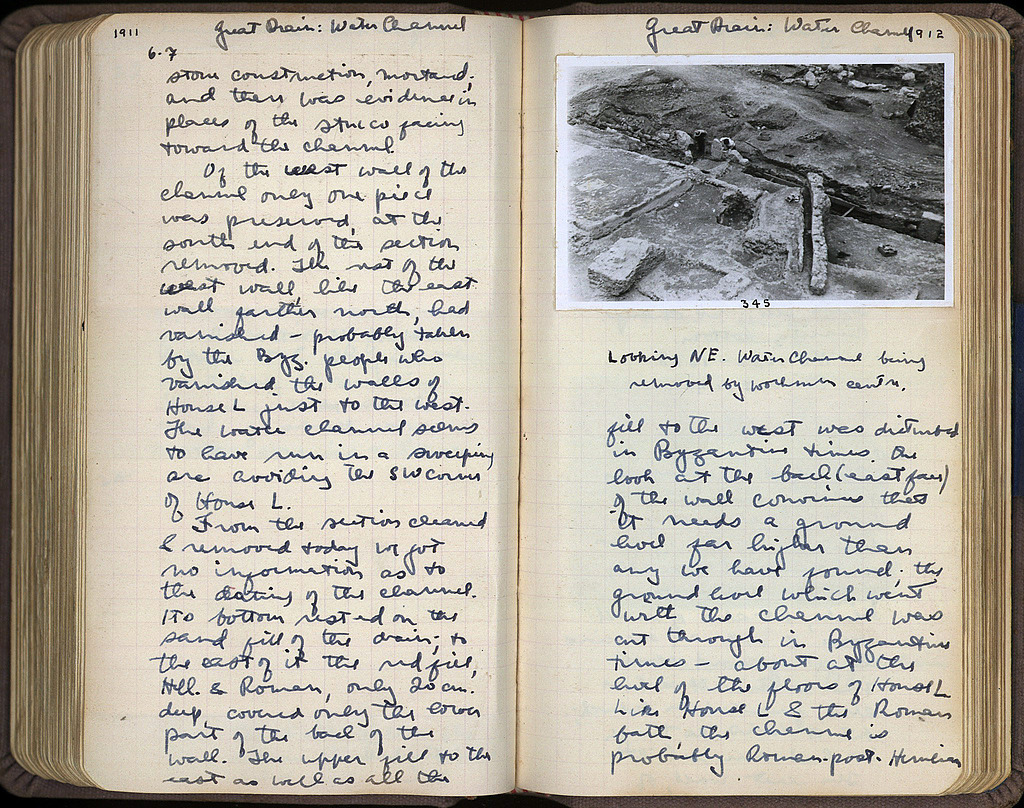 1911
Great Drain: Water Channel
6-7
stone construction, mortared,
and there was evidence in
places of the stucco facing
toward the channel
Of the west wall of the
channel only one piece
was preserved, at the
south end of the section
removed. The rest of the
west wall, like the east
wall farther north, had
vanished - probably taken
by the Byz. people who
vanished the walls of
House L just to the west.
The water channel seems
to have run in a sweeping
arc avoiding the SW corner
of House L.
From the section cleaned
& removed today we got
no information as to
the dating of the channel.
Its bottom rested on the
sand fill of the drain; to
the east of it the red fill,
Hell. & Roman, only 20 cm.
deep, covered only the lower
part of the back of the
wall. The upper fill to the
east as well as all the
Great Drain: Water Channel
1912
345
Looking NE. Water Channel being
removed by workmen centre.
fill to the west was disturbed
in Byzantine times. One
look at the back (east face)
of the wall convinces that
it needs a ground
level far higher than
any we have found; the
ground level which went
with the channel was
cut through in Byzantine
times - about at the
level of the floors of House L
Like House L & the Roman
bath, the channel is
probably Roman-post-Herulian